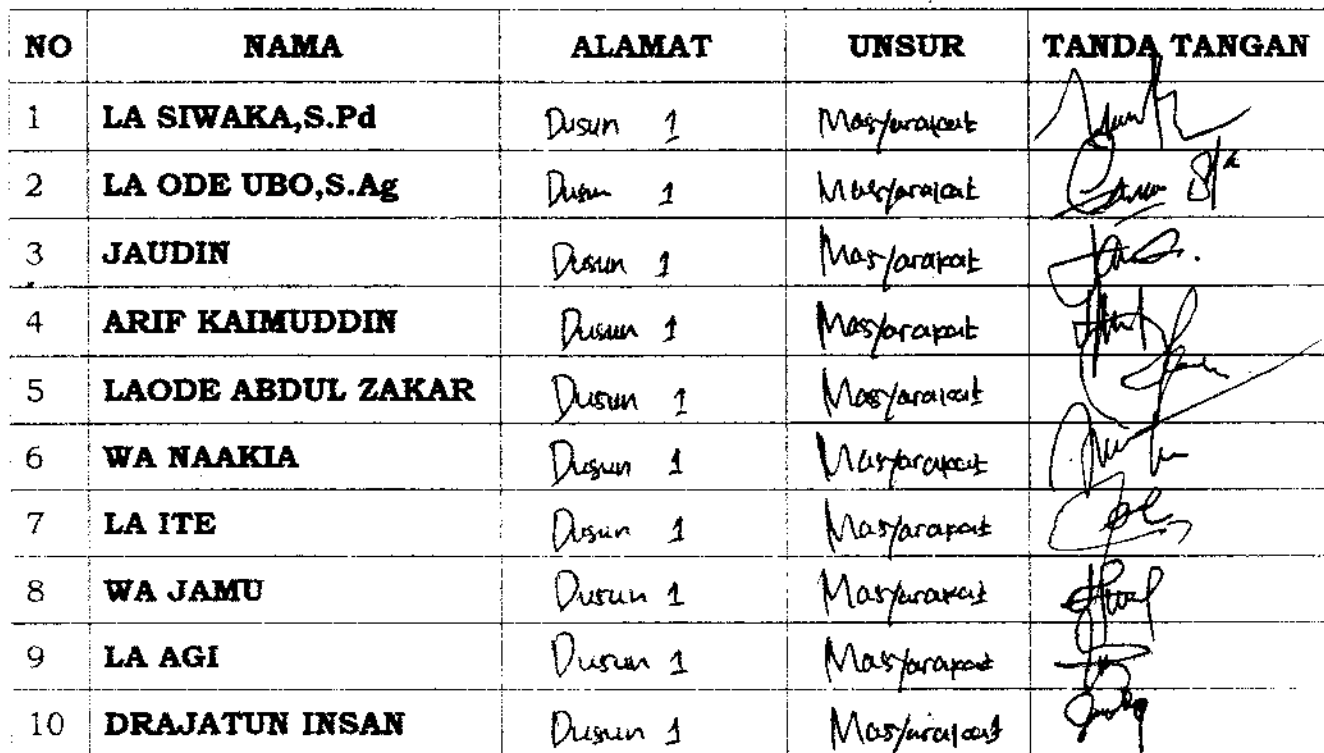 NO NAMA ALAMAT UNSUR TANDA TANGAN
1 LA SIWAKA,S.Pd Dusun 1 Masyarakat
2 LA ODE UBO,S.Ag Dusun 1 Masyarakat
3 JAUDIN Dusun 1 Masyarakat
4 ARIF KAIMUDDIN Dusun 1 Masyarakat
5 LAODE ABDUL ZAKAR Dusun 1 Masyarakat
6 WA NAAKIA Dusun 1 Masyarakat
7 LA ITE Dusun 1 Masyarakat
8 WA JAMU Dusun 1 Masyarakat
9 LA AGI Dusun 1 Masyarakat
10 DRAJATUN INSAN Dusun 1 Masyarakat